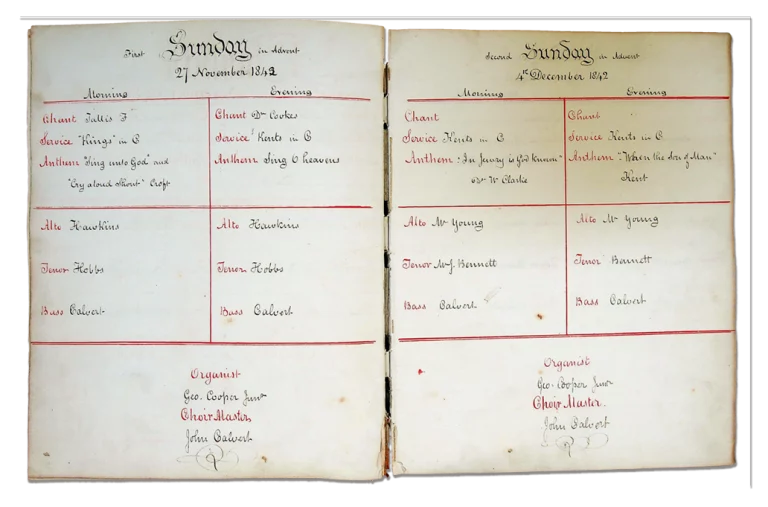 First Sunday in Advent
27 November 1842
Morning
Chant Tallis F
Service "Kings" in C
Anthem "Sing unto God" and
"Cry aloud shout" Croft
Alto Hawkins
Tenor Hobbs
Bass Calvert
Evening
Chant Dr Cookes
Service Kents in C
Anthem Sing O heavens
Alto Hawkins
Tenor Hobbs
Bass Calvert
Organist
Geo. Cooper Junr
Choir Master,
John Calvert
Second Sunday in Advent
4th December 1842
Morning
Chant
Service Kents in C
Anthem: "In Jewry is God known"
Dr W. Clarke
Alto Mr Young
Tenor Mr J. Bennett
Bass Calvert
Evening
Chant
Service Kents in C
Anthem: "When the Son of Man"
Kent
Alto Mr Young
Tenor Bennett
Bass Calvert
Organist
Geo. Cooper Junr
Choir Master.
John Calvert